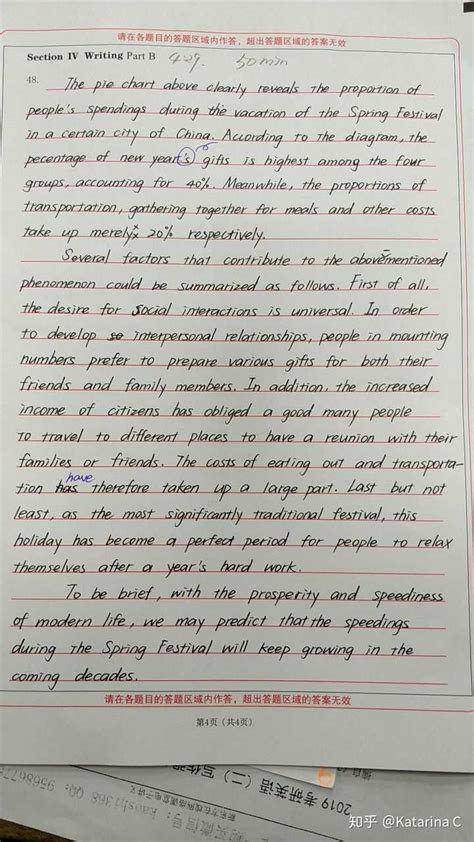 请在各题目的答题区域内作答，超出答题区域的答案无效
Section IV Writing Part B 4.29. 50 min
48. The pie chart above clearly reveals the proportion of
people's spendings during the vacation of the Spring Festival
in a certain city of China. According to the diagram, the
pecentage of new year's gifts is highest among the four
groups, accounting for 40%. Meanwhile, the proportions of
transportation, gathering together for meals and other costs
take up merely 20% respectively.
Several factors that contribute to the abovementioned
phenomenon could be summarized as follows. First of all,
the desire for social interactions is universal. In order
to develop so interpersonal relationships, people in mounting
numbers prefer to prepare various gifts for both their
friends and family members. In addition, the increased
income of citizens has obliged a good many people
to travel to different places to have a reunion with their
families or friends. The costs of eating out and transporta-
have
tion has therefore taken up a large part. Last but not
least, as the most significantly traditional festival, this
holiday has become a perfect period for people to relax
themselves after a year's hard work.
To be brief, with the prosperity and speediness
of modern life, we may predict that the speedings
during the Spring Festival will keep growing in the
coming decades.
请在各题目的答题区域内作答，超出答题区域的答案无效
第4页（共4页）
2019 考研英语（二）
知乎 @Katarina C